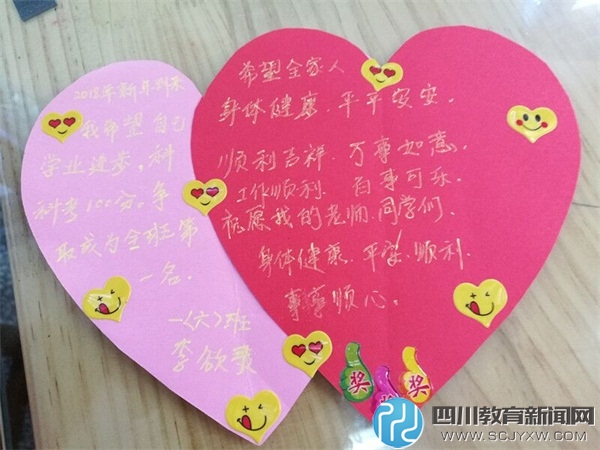 2018年新年到来
我希望自己
学业进步,科
科考100分。争
取成为全班第
一名.
一(六)班
李欣
希望全家人
身体健康.平平安安。
顺利吉祥.万事如意。
工作顺利.百事可乐.
祝愿我的老师.同学们.
身体健康.平安.顺利.
事事顺心。
奖
奖
奖
四川教育新闻网
WWW.SCJYXW.COM